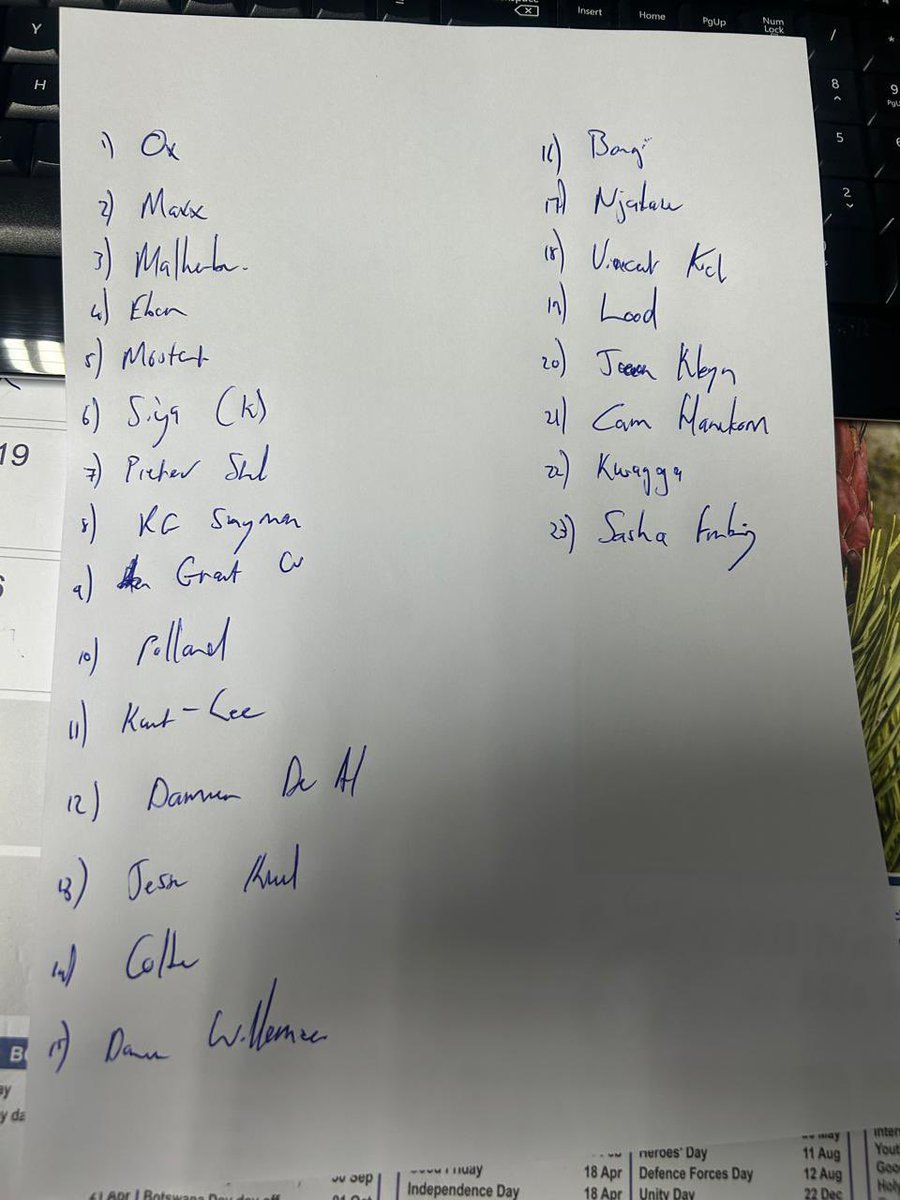 Insert
Home
PgUp
Num
Lock
Y
H
/
8
9
5
2
19
1) Ox
2) Marx
3) Malherbe.
4) Eben
5) Mostert
6) Siya (k)
7) Pieter
8)
9) Grant
10) Pollard
11) Kurt-Lee
12) Damian De Al
13) Jesse Kriel
14) Colbe
15) Damian Willemse
16) Bongi
17)
18) Vincent
19) Lood
20) Jean Kleyn
21) Cam Hanekom
22) Kwagga
23) Sasha
B
Heroes' Day
11 Aug
18 Apr
Defence Forces Day
12 Aug
Independence Day
18 Apr
Unity Day
22 Dec
Botswana Day